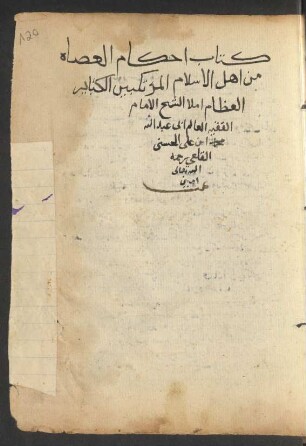 كتاب احكام العصاه
من اهل الاسلام المرتكبين الكبائر
العظام املا الشيخ الامام
الفقيه العالم ابي عبدالله
محمد ابن علي الحسني
القلعي رحمه
الله تعالى
امين